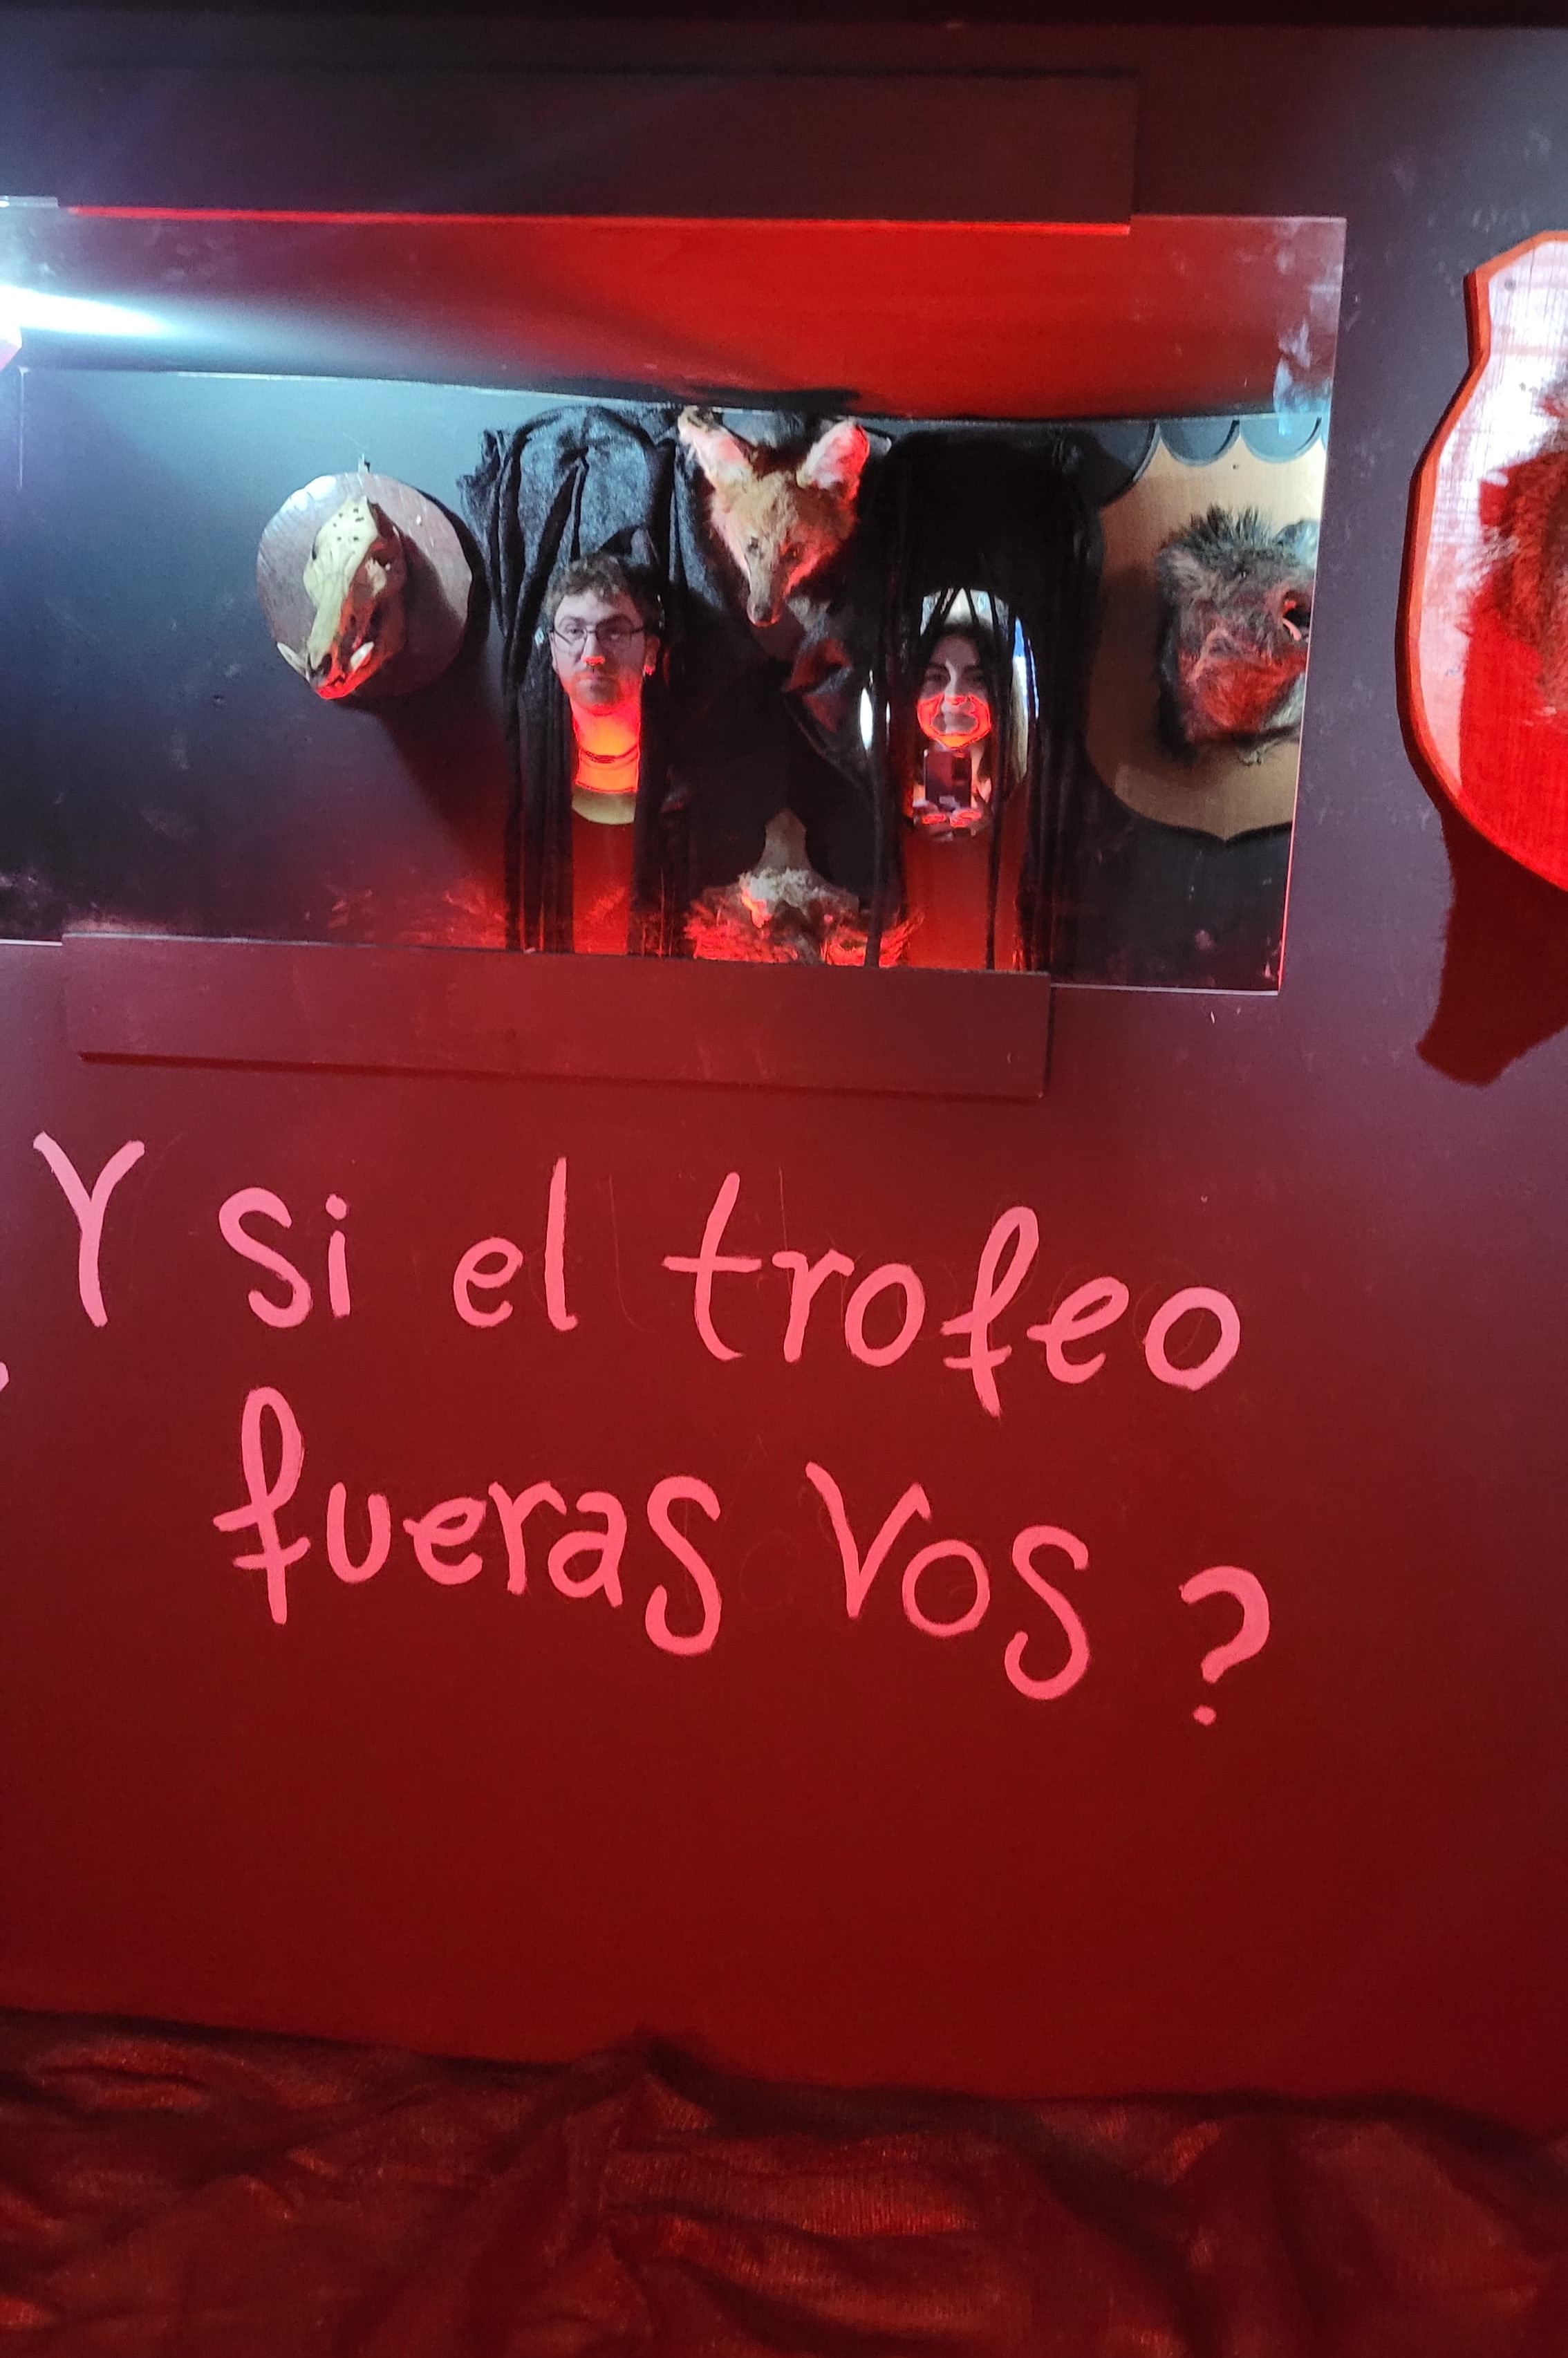 Y si el trofeo
fueras vos?